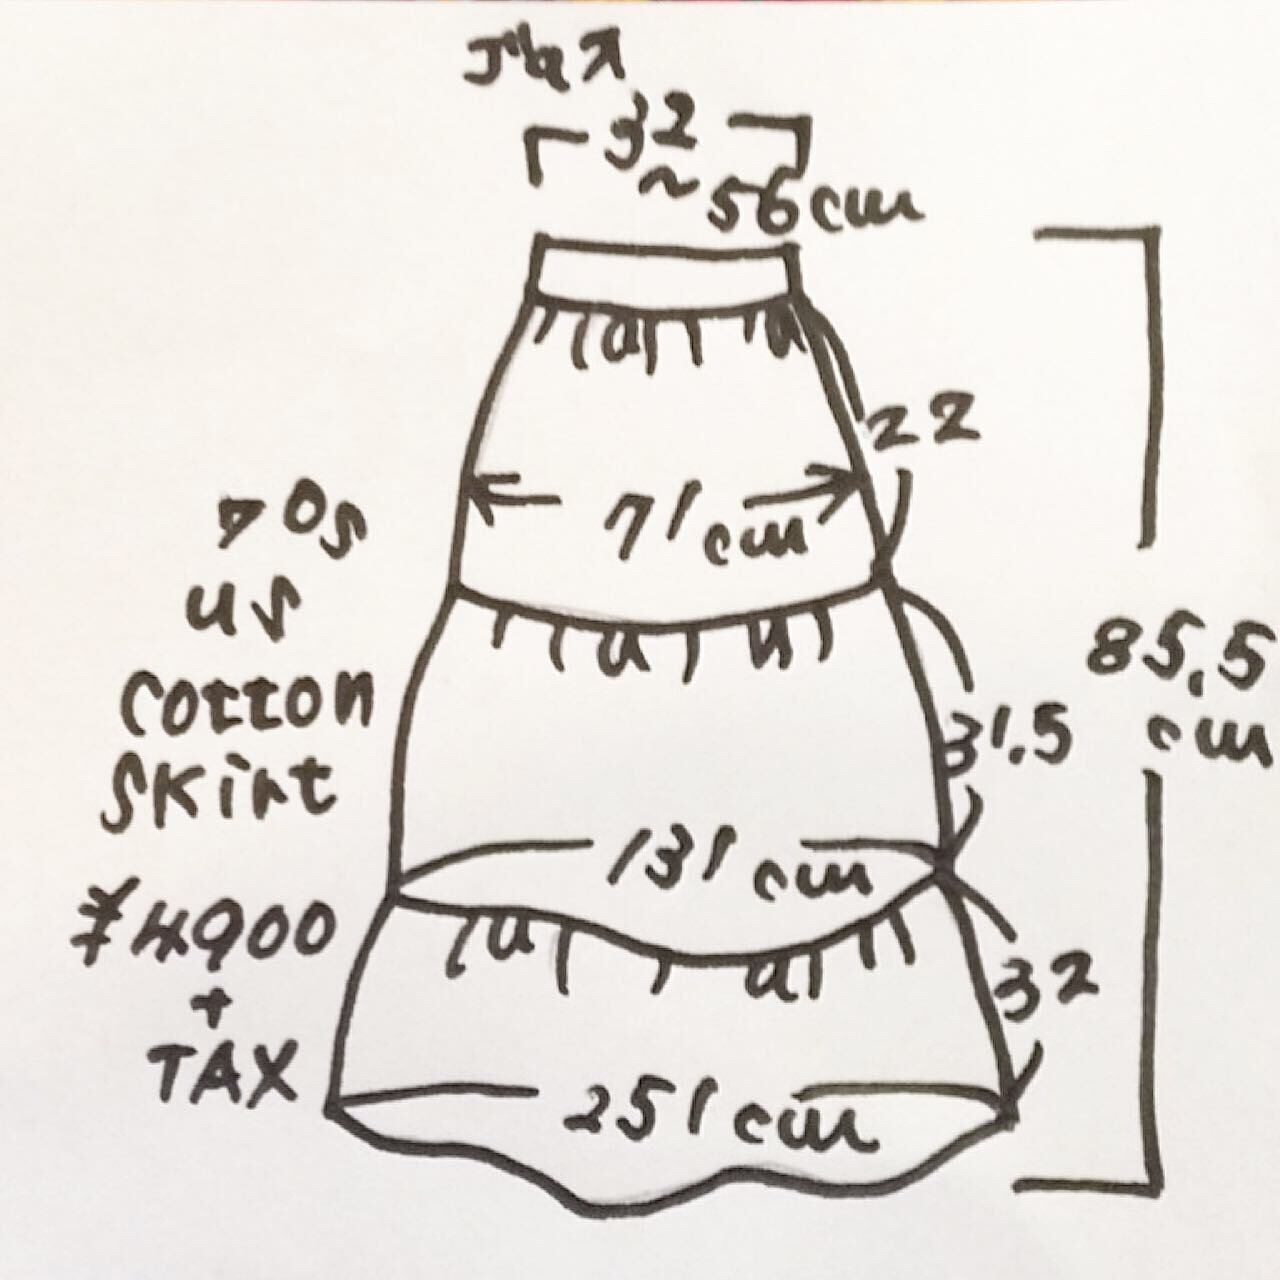 32
~56cm
22
71cm
70s
us
cotton
skirt
85.5
cm
31.5
131cm
¥4900
+
TAX
32
251cm